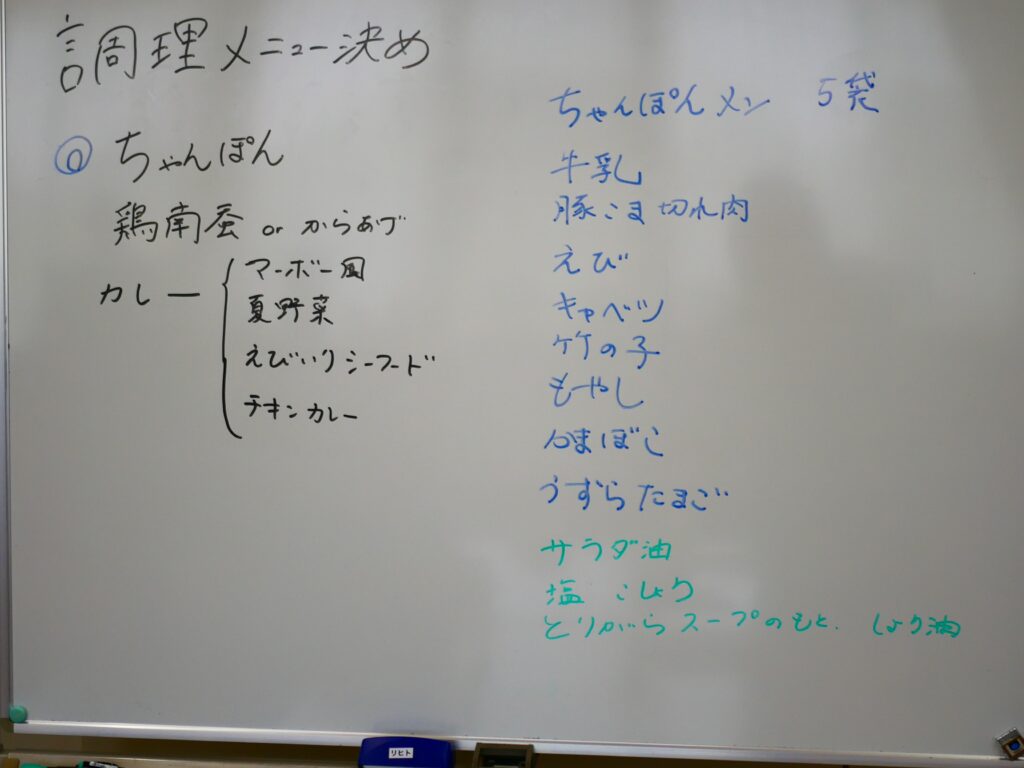 調理メニュー決め
◎ ちゃんぽん
鶏南蛮 or からあげ
カレー
マーボー風
夏野菜
えびいりシーフード
チキンカレー
ちゃんぽんメン 5袋
牛乳
豚こま切れ肉
えび
キャベツ
竹の子
もやし
かまぼこ
うずらたまご
サラダ油
塩 こしょう
とりがらスープのもと. しょう油
リヒト